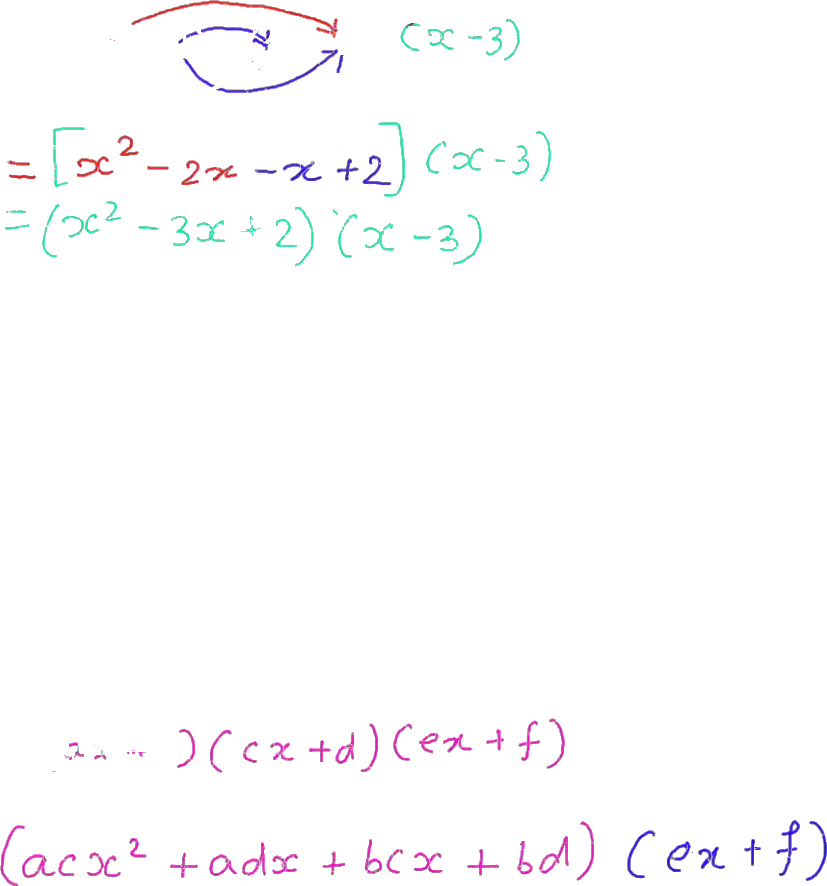 (x - 3)
= [x² - 2x - x + 2] (x - 3)
= (x² - 3x + 2) (x - 3)
)(cx + d)(ex + f)
(acx² + adx + bcx + bd) (ex + f)